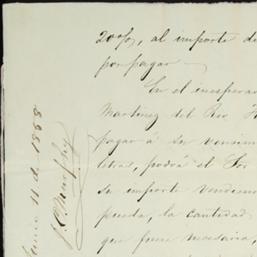 20%, al importe de
por pagar
En el inesperad
Martinez del Rio H
pagar á su vencim
letras, podrá el Sor
su importe vendien
pueda, la cantidad
que fuere necesaria,
11 de 1868